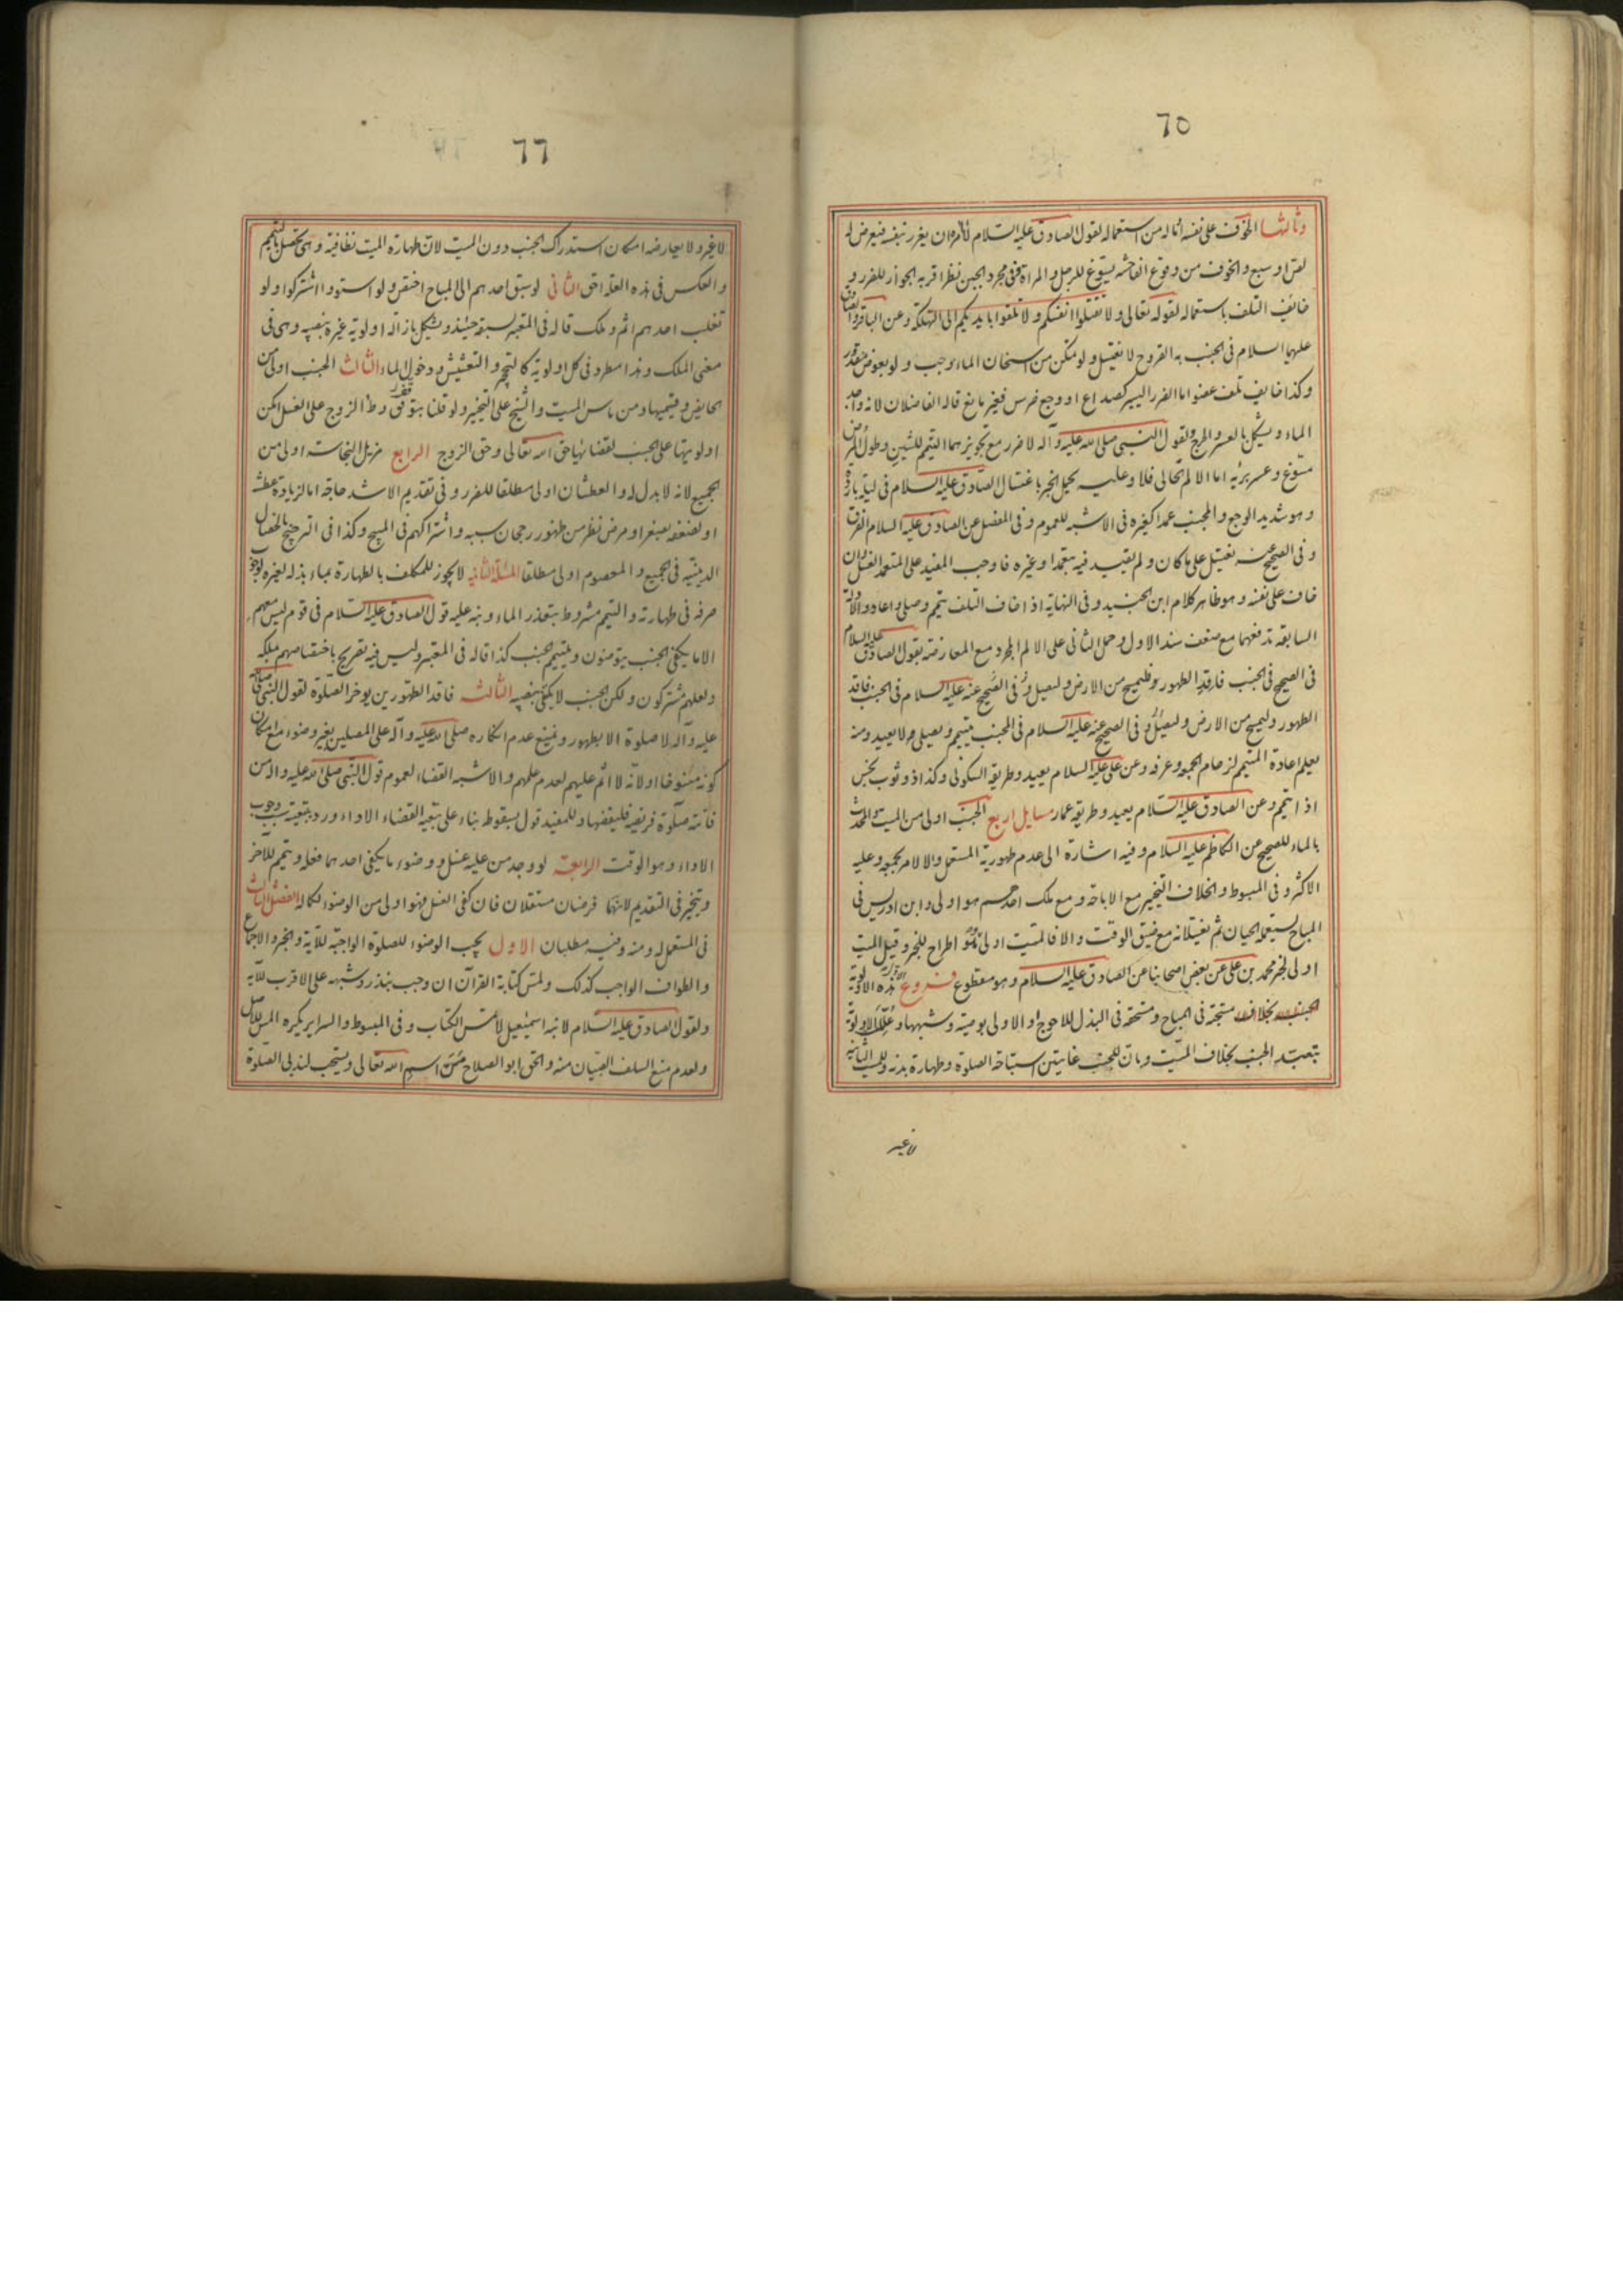 ٦٥
وثالثها الخوف على نفسه او ماله من استعماله لقول الصادق عليه السلام لا آمره ان يغرر بنفسه فيعرض له
لص او سبع والخوف من وقوع الفاحشه يسوغ للرجل والمراة وفى مجرد الجبن نظر اقربه الجواز للضرر و
خائف التلف باستعماله لقوله تعالى ولا تقتلوا انفسكم ولا تلقوا بايديكم الى التهلكة وعن الباقر والصادق
عليهما السلام فى الجنب به القروح لا يغتسل ولو تمكن من اسخان الماء وجب ولو بعوض مقدور
وكذا خايف تلف عضو اما الضرر اليسير كصداع او وجع ضرس فغير مانع قاله الفاضلان لانه واجد
الماء ويشكل بالعسر والحرج ولقول النبى صلى الله عليه وآله لا ضرر مع تجويزهما التيمم للشين وطول المرض
مسوغ وعسر برئه اما الالم الحالى فلا وعليه يحمل الخبر باغتسال الصادق عليه السلام فى ليلة باردة
وهو شديد الوجع والمجنب عمدا كغيره فى الاشبه للعموم وفى المفضل عن الصادق عليه السلام الفرق
وفى الصحيح عنه يغتسل على ما كان ولم يقيد فيه بتعمد او غيره فاوجب المفيد على المتعمد الغسل وان
خاف على نفسه وهو ظاهر كلام ابن الجنيد وفى النهاية اذا خاف التلف تيمم وصلى واعاد والادلة
السابقة تدفعهما مع ضعف سند الاول وحمل الثانى على الالم المجرد مع المعارضة بقول الصادق عليه السلام
فى الصحيح فى الجنب فاقد الطهور فليمسح من الارض وليصل وفى الصحيح عنه عليه السلام فى الجنب فاقد
الطهور وليمسح من الارض وليصل وفى الصحيح عنه عليه السلام فى المجنب يتيمم ويصلى ولا يعيد ومنه
يعلم اعادة المتيمم لزحام الجمعة وعرفه وعن على عليه السلام يعيد وطريقه السكونى وكذا ذو ثوب نجس
اذا تيمم وعن الصادق عليه السلام يعيد وطريقه عمار مسايل اربع الجنب اولى من الميت والمحدث
بالماء للصحيح عن الكاظم عليه السلام وفيه اشارة الى عدم طهورية المستعمل والا لامر بجمعه وعليه
الاكثر وفى المبسوط والخلاف التخيير مع الاباحة ومع ملك احدهم هو اولى وابن ادريس فى
المباح يستعمله الحيان ثم يغسلانه مع ضيق الوقت والا فالميت اولى وهو اطراح للخبر وقيل الميت
اولى لخبر محمد بن على عن بعض اصحابنا عن الصادق عليه السلام وهو مقطوع فروع هذه الاولوية
مستحقة فى المباح ومستحقة فى البذل للاحوج او الاولى بوصية وشبهها وعلل الاولوية
بتعبد الجنب بخلاف الميت وبان للجنب غايتين استباحة الصلوة وطهارة بدنه وللميت الثانية
لا غير
٦٦
لا غير ولا يعارضه امكان استدراك الجنب دون الميت لان طهارة الميت نظافية وهى تحصل بالتيمم
والعكس فى هذه العلة احق الثانى لو سبق احدهم الى المباح اختص ولو استووا اشتركوا ولو
تغلب احدهم اثم وملك قاله فى المعتبر لسبقه حينئذ ويشكل بازالة اولوية غيره بنفسه وهى فى
معنى الملك وهذا مطرد فى كل اولوية كالتحجر والتعشيش ودخول الماء الثالث الجنب اولى من
الحايض وقسيميها ومن ماس الميت والشيخ على التخيير ولو قلنا بتوقف وطء الزوج على الغسل امكن
اولويتها على الجنب لقضائها حق الله تعالى وحق الزوج الرابع مزيل النجاسة اولى من
الجميع لانه لا بدل له والعطشان اولى مطلقا للضرر وفى تقديم الاشد حاجة اما لزيادة عطشه
او لضعفه بصغر او مرض نظر من ظهور رجحان سببه واشتراكهم فى المبيح وكذا فى الترجيح بالخصال
الدينية فى الجميع والمعصوم اولى مطلقا المسئلة الثانية لا يجوز للمكلف بالطهارة بماء بذله لغيره لوجوب
صرفه فى طهارته والتيمم مشروط بتعذر الماء ونبه عليه قول الصادق عليه السلام فى قوم ليس معهم
الا ما يكفى الجنب يتوضون ويتيمم الجنب كذا قاله فى المعتبر وليس فيه تصريح باختصاصهم بملكه
ولعلهم مشتركون ولكن الجنب لا يكفى بنصيبه الثالثه فاقد الطهورين يوخر الصلوة لقول النبى صلى الله
عليه وآله لا صلوة الا بطهور ونمنع عدم انكاره صلى الله عليه وآله على المصلين بغير وضوء مع امكان
كونه منسوخا او لانه لا اثم عليهم لعدم علمهم والاشبه القضاء لعموم قول النبى صلى الله عليه وآله من
فاتته صلوة فريضه فليقضها وللمفيد قول بسقوطه بناء على تبعية القضاء الاداء ورد بتبعية سبب وجوب
الاداء وهو الوقت الرابعة لو وجد من عليه غسل ووضوء ما يكفى احدهما فعله وتيمم للآخر
ويتخير فى التقديم لانهما فرضان مستقلان فان كفى الغسل فهو اولى من الوضوء لكماله الفصل الثالث
فى المستعمل له ومنه وفيه مطلبان الاول يجب الوضوء للصلوة الواجبة للآية والخبر والاجماع
والطواف الواجب كذلك ولمس كتابة القرآن ان وجب بنذر وشبهه على الاقرب للآية
ولقول الصادق عليه السلام لابنه اسمعيل لا تمس الكتاب وفى المبسوط والسراير يكره المس للاصل
ولعدم منع السلف الصبيان منه والحق ابو الصلاح مس اسم الله تعالى ويستحب لندبى الصلوة